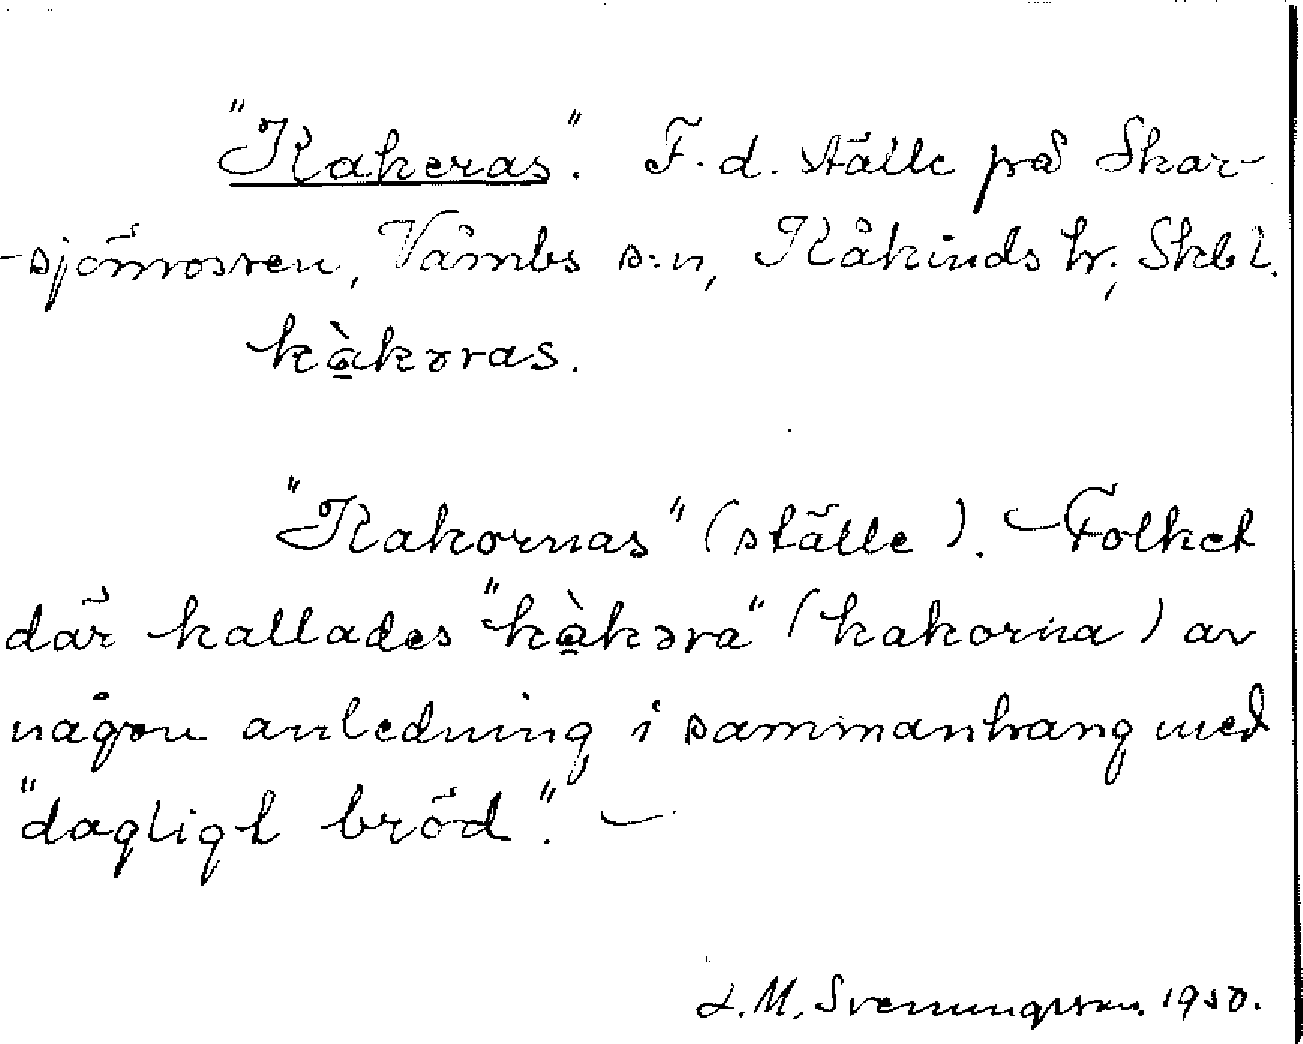 "Kakeras". F. d. ställe på Skar-
-sjömosren, Våmbs s:n, Kåkinds hr, Skbl.
kàkəras.
"Kakornas" (ställe). – Folket
där kallades "kàkəra" (kakorna) av
någon anledning i sammanhang med
"dagligt bröd". –
L. M. Svenungsson. 1950.